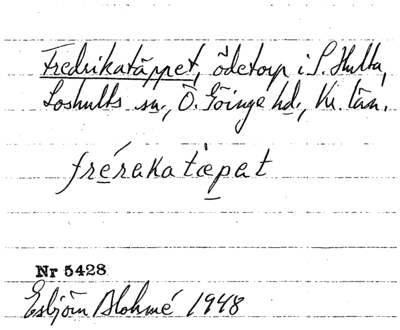 Fredrikatäppet, ödetorp i S. Hulta,
Loshults sn., Ö. Göinge hd., Kr. län.
fréraka tæpat
Nr 5428
Esbjörn Blohmé 1948